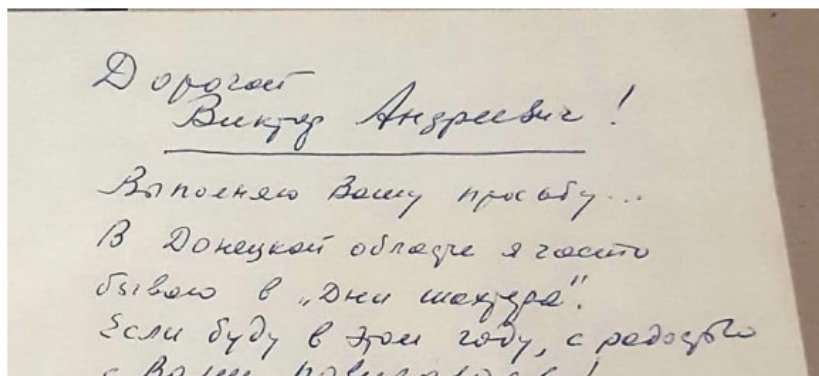 Дорогой
Виктор Андреевич!
Выполняю Вашу просьбу...
В Донецкой области я часто
бываю в „Дни шахтера".
Если буду в этом году, с радостью
с Вами повидаюсь!